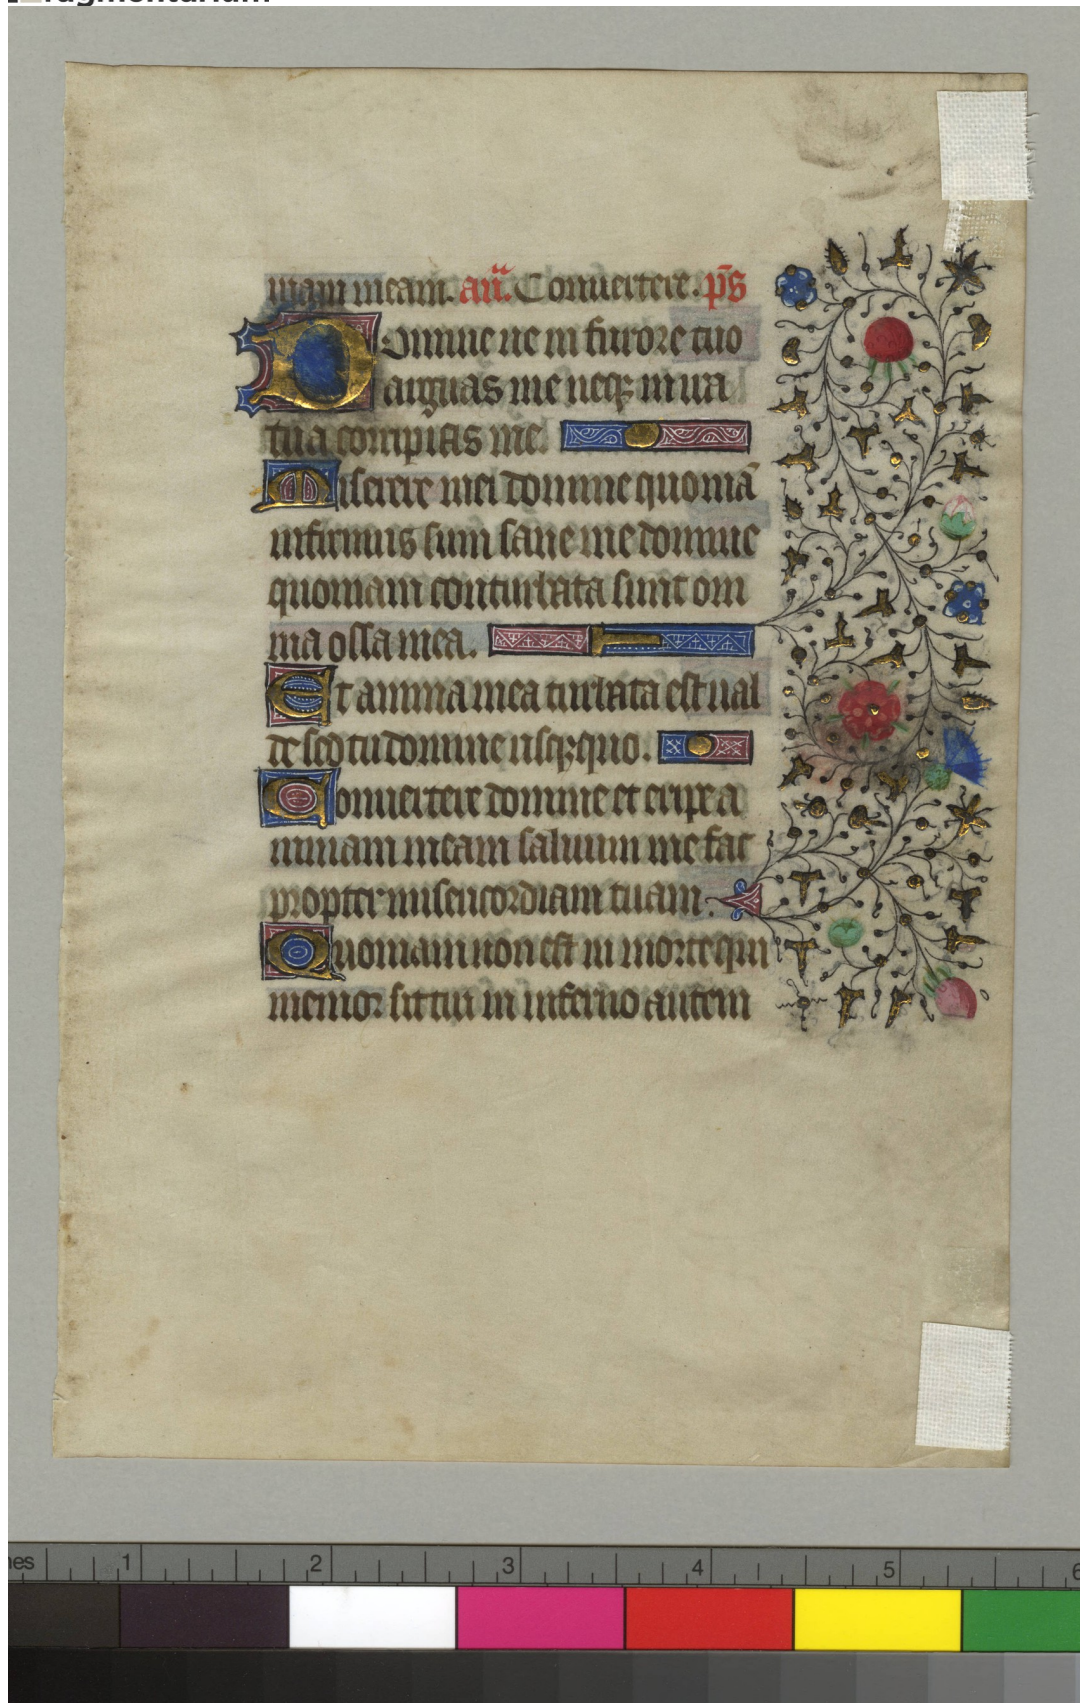 ragmentarium
mam meam. añ. Conuertere. p̄s
Domine ne in furore tuo
arguas me neqꝫ in ira
tua corripias me.
Miserere mei domine quoniā
infirmus sum sane me domine
quoniam conturbata sunt om
nia ossa mea.
Et anima mea turbata est ual
de sed tu domine usqꝫquo.
Conuertere domine et eripe a
nimam meam saluum me fac
propter misericordiam tuam.
Quoniam non est in morte qui
memor sit tui in inferno autem
1 2 3 4 5 6